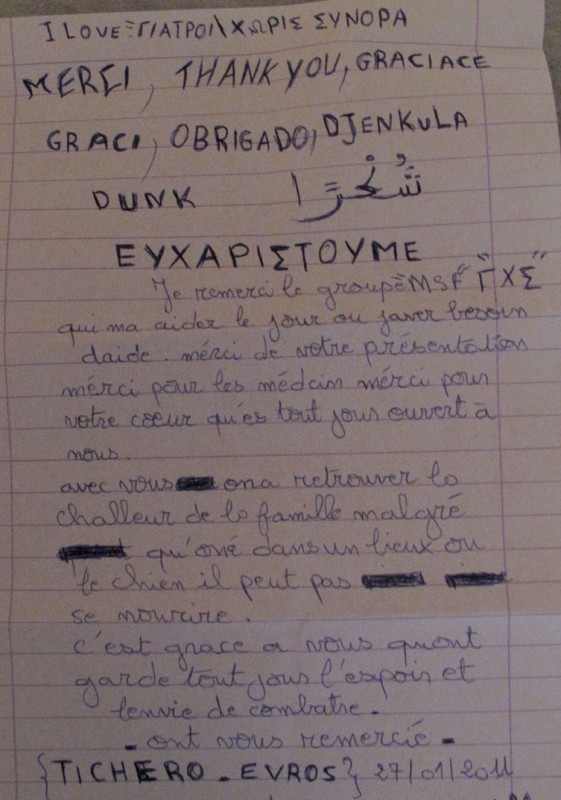 I LOVE "ΓΙΑΤΡΟΙ\ ΧΩΡΙΣ ΣΥΝΟΡΑ
MERCI, THANK YOU, GRACIACE
GRACI, OBRIGADO, DJENKULA
DUNK شُكْرًا
ΕΥΧΑΡΙΣΤΟΥΜΕ
Je remerci le groupe "MSF" "ΓΧΣ"
qui ma aider le jour ou javer besoin
daide. mérci de votre présentation
mérci pour les médcin mérci pour
votre coeur qu'es tout jous ouvert à
nous.
avec vous ona retrouver la
challeur de la famille malgré
qu'oné dans un lieux ou
le chien il peut pas
se nourire.
c'est grace a vous quont
garde tout jous l'espoir et
lenvie de combatre.
- ont vous remercié -
{TICHERO - EVROS} 27/01/2011